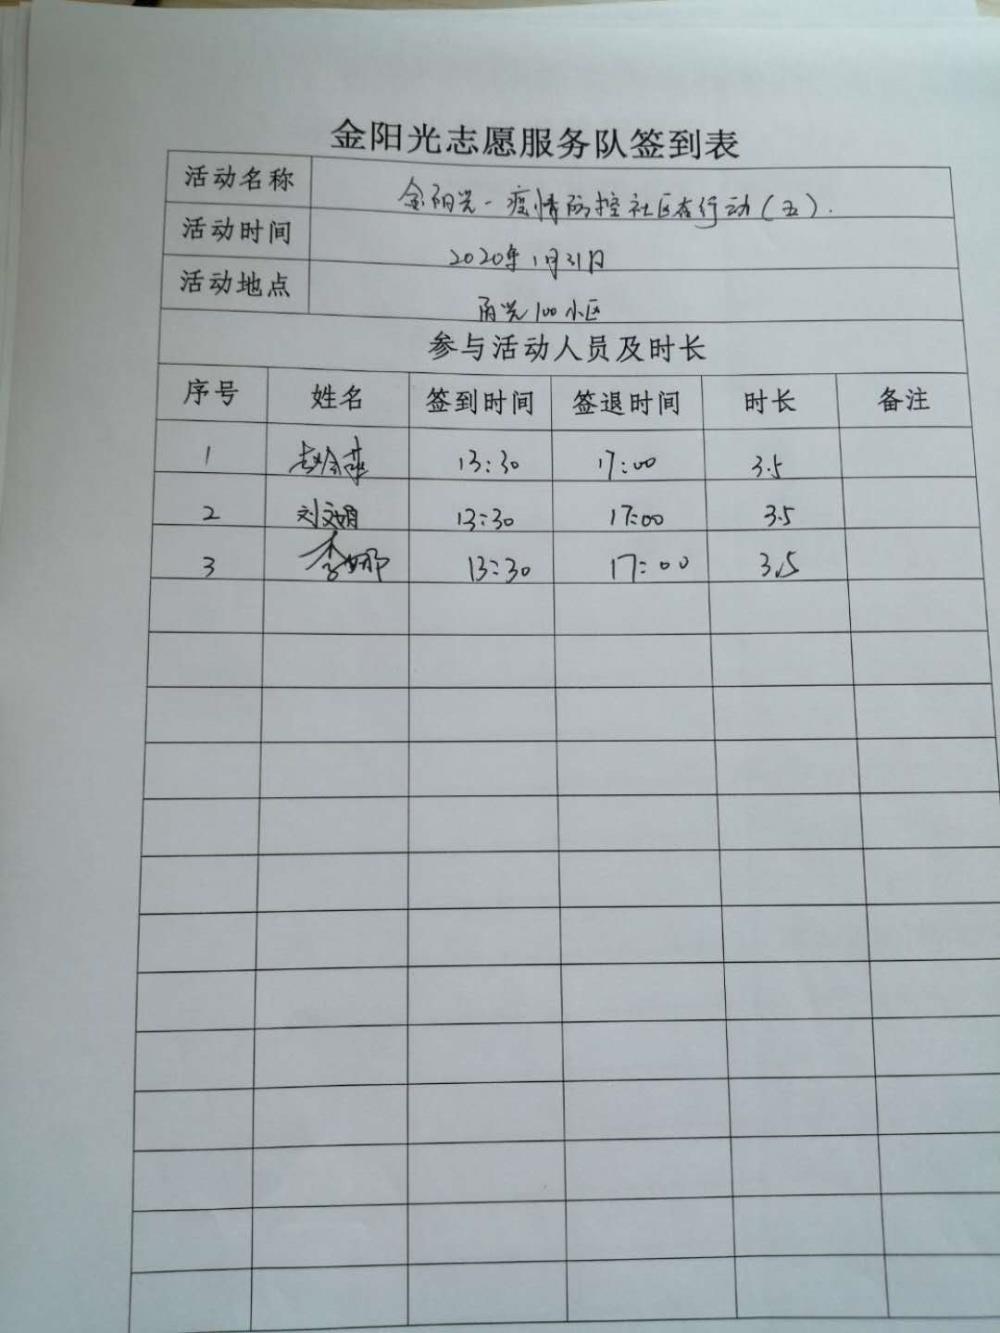 金阳光志愿服务队签到表
活动名称 金阳光-疫情防控社区在行动(五).
活动时间 2020年1月31日
活动地点 阳光100小区
参与活动人员及时长
序号 姓名 签到时间 签退时间 时长 备注
1 13:30 17:00 3.5
2 刘文娟 13:30 17:00 3.5
3 李娜 13:30 17:00 3.5